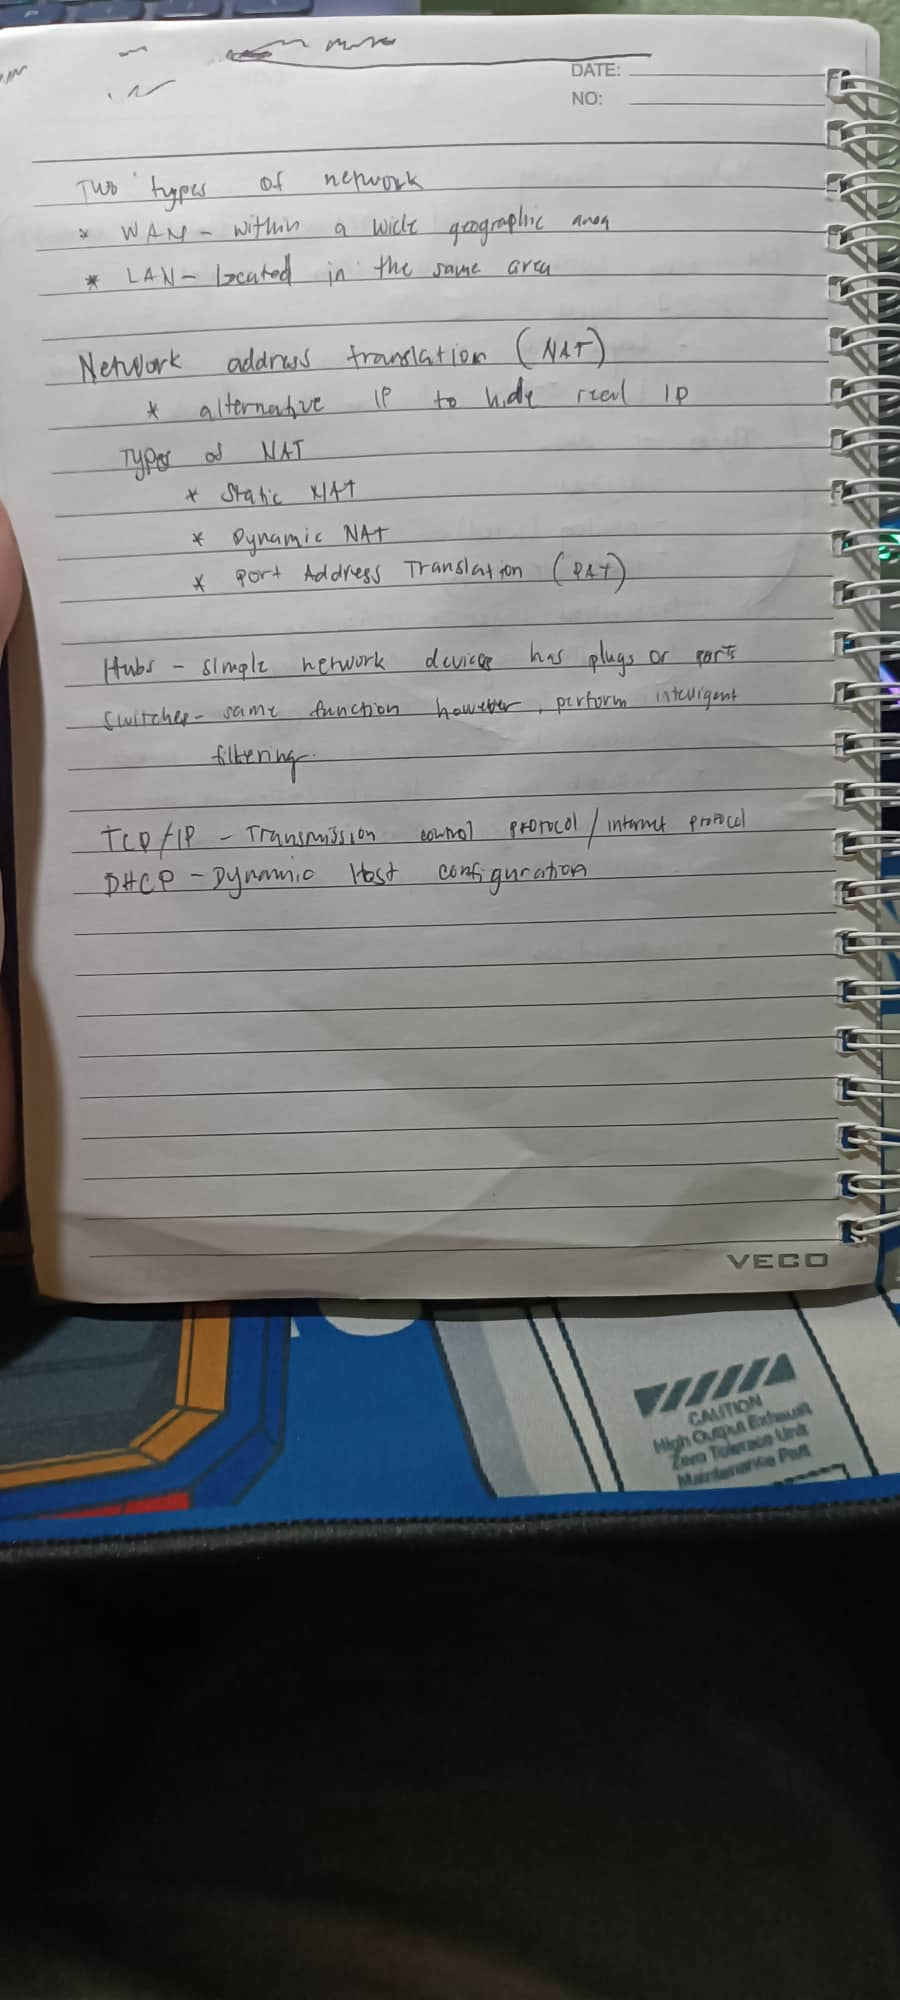 DATE:
NO:
Two types of network
* WAN - within a wide geographic area
* LAN - located in the same area
Network address translation (NAT)
* alternative IP to hide real IP
Types of NAT
* Static NAT
* Dynamic NAT
* Port Address Translation (PAT)
Hubs - simple network device has plugs or ports
Switches - same function however, perform intelligent
filtering.
TCP/IP - Transmission control protocol/internet protocol
DHCP - Dynamic Host configuration
VECO
CAUTION
High Output Exhaust
Zero Tolerace Unit
Maintenance Port